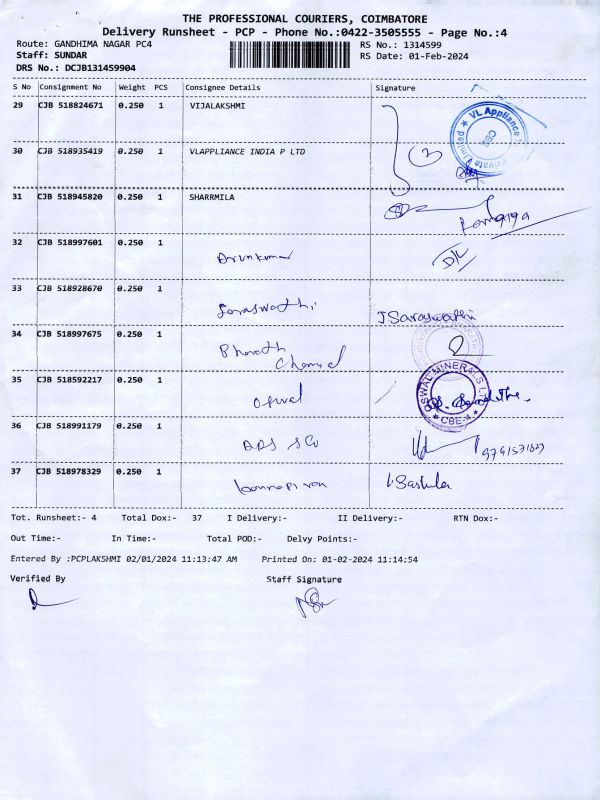 THE PROFESSIONAL COURIERS, COIMBATORE
Delivery Runsheet - PCP - Phone No.:0422-3505555 - Page No.:4
Route: GANDHIMA NAGAR PC4 RS No.: 1314599
Staff: SUNDAR RS Date: 01-Feb-2024
DRS No.: DCJB131459904
S No Consignment No Weight PCS Consignee Details Signature
29 CJB 518824671 0.250 1 VIJALAKSHMI
VL Appliance Private Limited
30 CJB 518935419 0.250 1 VLAPPLIANCE INDIA P LTD
31 CJB 518945820 0.250 1 SHARRMILA
32 CJB 518997601 0.250 1
Arunkumar
33 CJB 518928670 0.250 1
Saraswathi J Saraswathi
34 CJB 518997675 0.250 1
Bharath
35 CJB 518592217 0.250 1
OSWAL MINERALS LTD
CBE-4
Oswal
36 CJB 518991179 0.250 1
37 CJB 518978329 0.250 1
Tot. Runsheet:- 4 Total Dox:- 37 I Delivery:- II Delivery:- RTN Dox:-
Out Time:- In Time:- Total POD:- Delvy Points:-
Entered By :PCPLAKSHMI 02/01/2024 11:13:47 AM Printed On: 01-02-2024 11:14:54
Verified By Staff Signature